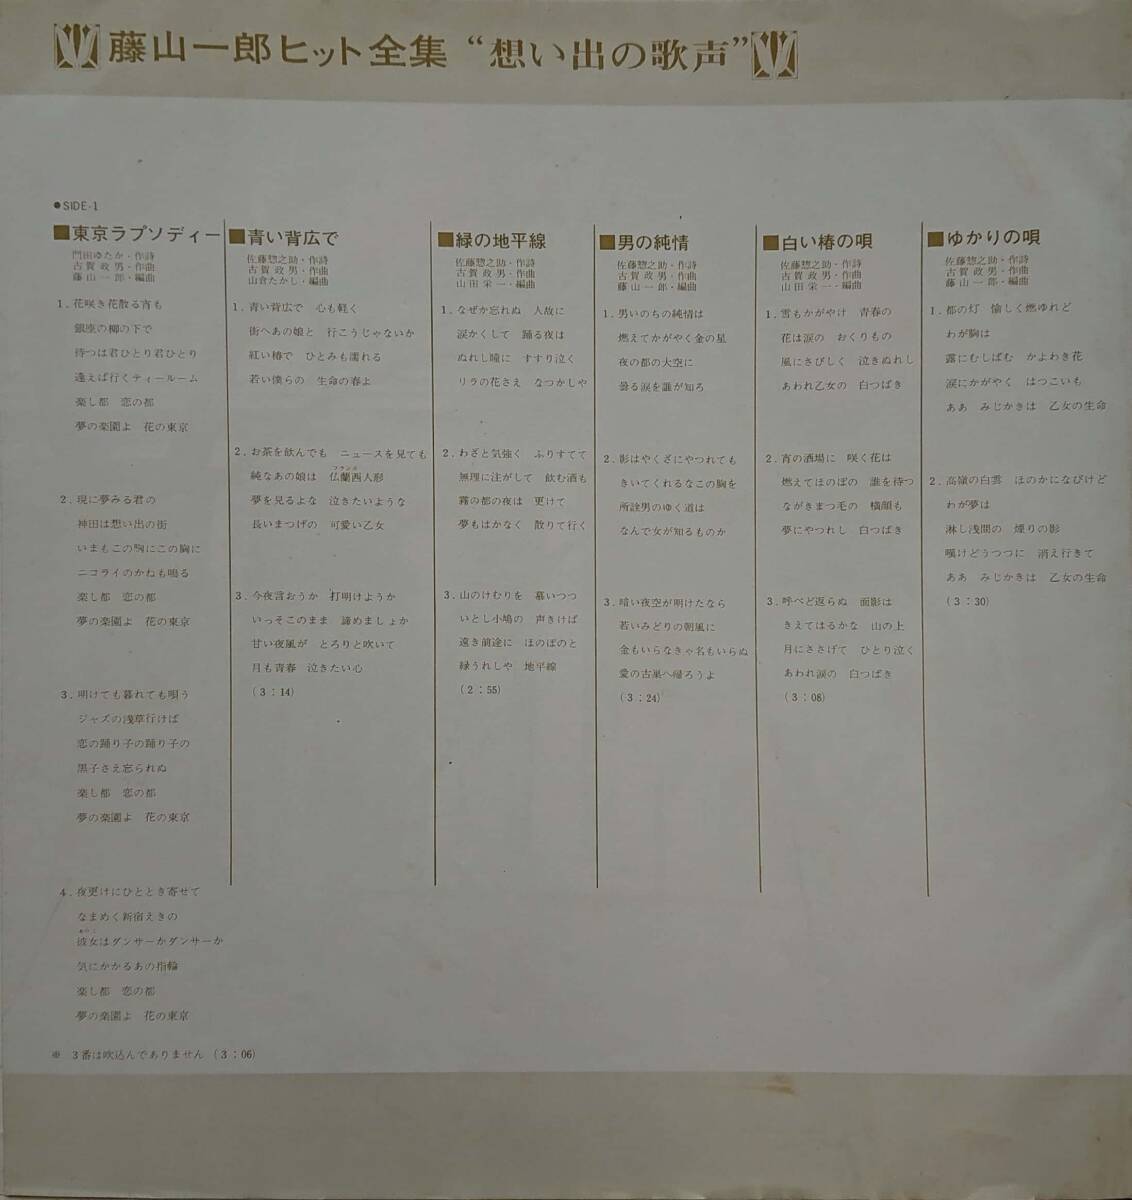 藤山一郎ヒット全集 “想い出の歌声”
●SIDE-1
■東京ラプソディー
門田ゆたか・作詩
古賀政男・作曲
藤山一郎・編曲
1．花咲き花散る宵も
銀座の柳の下で
待つは君ひとり君ひとり
逢えば行くティールーム
楽し都　恋の都
夢の楽園よ　花の東京
2．現に夢みる君の
神田は想い出の街
いまもこの胸にこの胸に
ニコライのかねも鳴る
楽し都　恋の都
夢の楽園よ　花の東京
3．明けても暮れても唄う
ジャズの浅草行けば
恋の踊り子の踊り子の
黒子さえ忘られぬ
楽し都　恋の都
夢の楽園よ　花の東京
4．夜更けにひととき寄せて
なまめく新宿えきの
彼女はダンサーかダンサーか
気にかかるあの指輪
楽し都　恋の都
夢の楽園よ　花の東京
※　3番は吹込んでありません（3：06）
■青い背広で
佐藤惣之助・作詩
古賀政男・作曲
山倉たかし・編曲
1．青い背広で　心も軽く
街へあの娘と　行こうじゃないか
紅い椿で　ひとみも濡れる
若い僕らの　生命の春よ
2．お茶を飲んでも　ニュースを見ても
純なあの娘は　仏蘭西人形
フランス
夢を見るよな　泣きたいような
長いまつげの　可愛い乙女
3．今夜言おうか　打明けようか
いっそこのまま　諦めましょか
甘い夜風が　とろりと吹いて
月も青春　泣きたい心
（3：14）
■緑の地平線
佐藤惣之助・作詩
古賀政男・作曲
山田栄一・編曲
1．なぜか忘れぬ　人故に
涙かくして　踊る夜は
ぬれし瞳に　すすり泣く
リラの花さえ　なつかしや
2．わざと気強く　ふりすてて
無理に注がして　飲む酒も
霧の都の夜は　更けて
夢もはかなく　散りて行く
3．山のけむりを　慕いつつ
いとし小鳩の　声きけば
遠き前途に　ほのぼのと
緑うれしや　地平線
（2：55）
■男の純情
佐藤惣之助・作詩
古賀政男・作曲
藤山一郎・編曲
1．男いのちの純情は
燃えてかがやく金の星
夜の都の大空に
曇る涙を誰が知ろ
2．影はやくざにやつれても
きいてくれるなこの胸を
所詮男のゆく道は
なんで女が知るものか
3．暗い夜空が明けたなら
若いみどりの朝風に
金もいらなきゃ名もいらぬ
愛の古巣へ帰ろうよ
（3：24）
■白い椿の唄
佐藤惣之助・作詩
古賀政男・作曲
山田栄一・編曲
1．雪もかがやけ　青春の
花は涙の　おくりもの
風にさびしく　泣きぬれし
あわれ乙女の　白つばき
2．宵の酒場に　咲く花は
燃えてほのぼの　誰を待つ
ながきまつ毛の　横顔も
夢にやつれし　白つばき
3．呼べど返らぬ　面影は
きえてはるかな　山の上
月にささげて　ひとり泣く
あわれ涙の　白つばき
（3：08）
■ゆかりの唄
佐藤惣之助・作詩
古賀政男・作曲
藤山一郎・編曲
1．都の灯　愉しく燃ゆれど
わが胸は
露にむしばむ　かよわき花
涙にかがやく　はつこいも
ああ　みじかきは　乙女の生命
2．高嶺の白雲　ほのかになびけど
わが夢は
淋し浅間の　煙りの影
嘆けどうつつに　消え行きて
ああ　みじかきは　乙女の生命
（3：30）